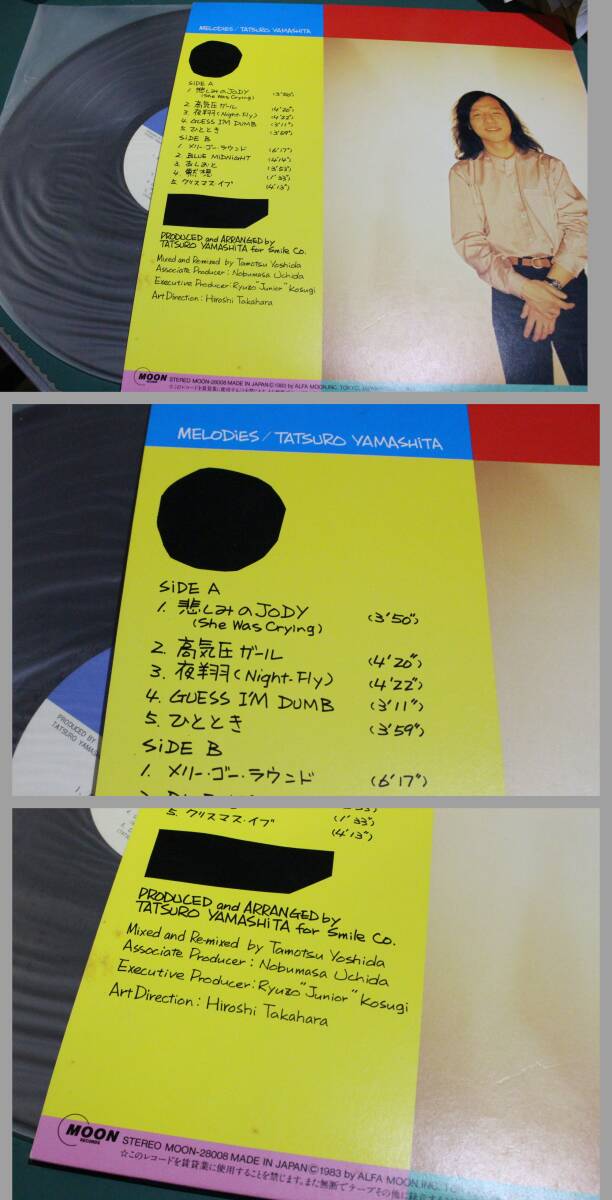 MELODiES / TATSURO YAMASHiTA
SiDE A
1. 悲しみのJODY (3'50")
(She Was Crying)
2. 高気圧ガール (4'20")
3. 夜翔(Night-Fly) (4'22")
4. GUESS I'M DUMB (3'11")
5. ひととき (3'59")
SiDE B
1. メリー・ゴー・ラウンド (6'17")
2. BLUE MIDNIGHT (4'14")
3. あしおと (3'53")
4. 黙想 (1'33")
5. クリスマス・イブ (4'13")
PRODUCED and ARRANGED by
TATSURO YAMASHiTA for Smile Co.
Mixed and Remixed by Tamotsu Yoshida
Associate Producer : Nobumasa Uchida
Executive Producer : Ryuzo "Junior" Kosugi
Art Direction : Hiroshi Takahara
MOON RECORDS STEREO MOON-28008 MADE IN JAPAN Ⓒ 1983 by ALFA MOON.INC. TOKYO,
☆このレコードを賃貸業に使用することを禁じます。
MELODiES / TATSURO YAMASHiTA
SiDE A
1. 悲しみのJODY (3'50")
(She Was Crying)
2. 高気圧ガール (4'20")
3. 夜翔(Night-Fly) (4'22")
4. GUESS I'M DUMB (3'11")
5. ひととき (3'59")
SiDE B
1. メリー・ゴー・ラウンド (6'17")
PRODUCED BY
TATSURO YAMAS
(1'33")
5. クリスマス・イブ (4'13")
PRODUCED and ARRANGED by
TATSURO YAMASHiTA for Smile Co.
Mixed and Re-mixed by Tamotsu Yoshida
Associate Producer : Nobumasa Uchida
Executive Producer : Ryuzo "Junior" Kosugi
Art Direction : Hiroshi Takahara
MOON RECORDS STEREO MOON-28008 MADE IN JAPAN Ⓒ 1983 by ALFA MOON.INC. TO
☆このレコードを賃貸業に使用することを禁じます。また無断でテープその他に